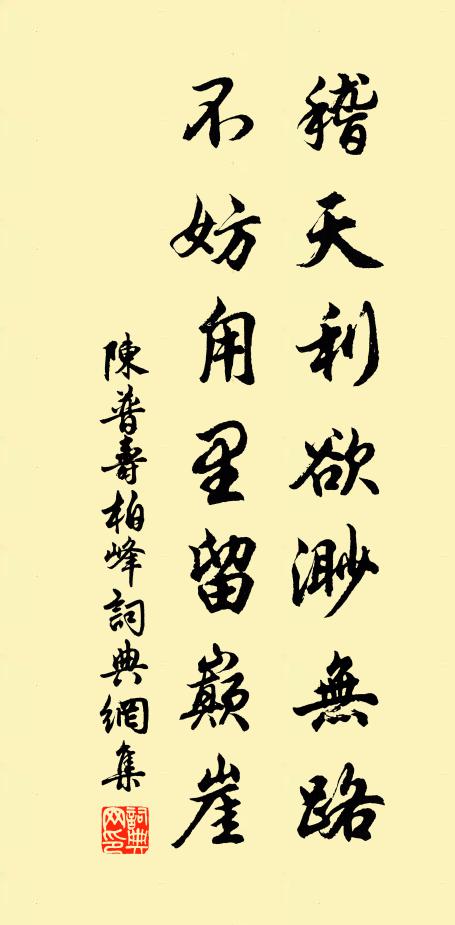 稽天利欲渺無路
不妨甪里留巔崖
陳普壽柏峰詞典網集
詞典网印